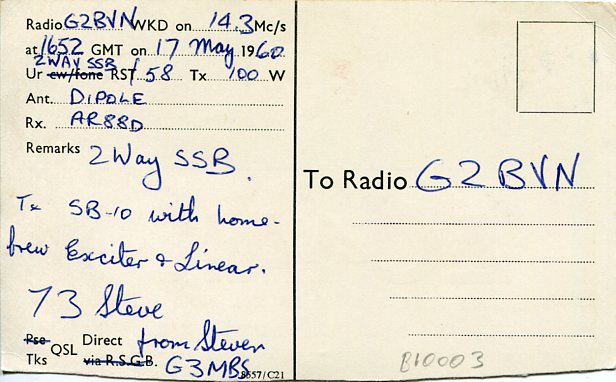 Radio G2BVN WKD on 14.3 Mc/s
at 1652 GMT on 17 May 1960
2WAY SSB
Ur cw/fone RST 58 Tx 100 W
Ant. DIPOLE
Rx. AR88D
Remarks 2 Way SSB.
Tx SB-10 with home-
brew Exciter & Linear.
73 Steve
Pse QSL Direct from Steven
Tks via R.S.G.B. G3MBS
8557/C21
To Radio G2BVN
B10003